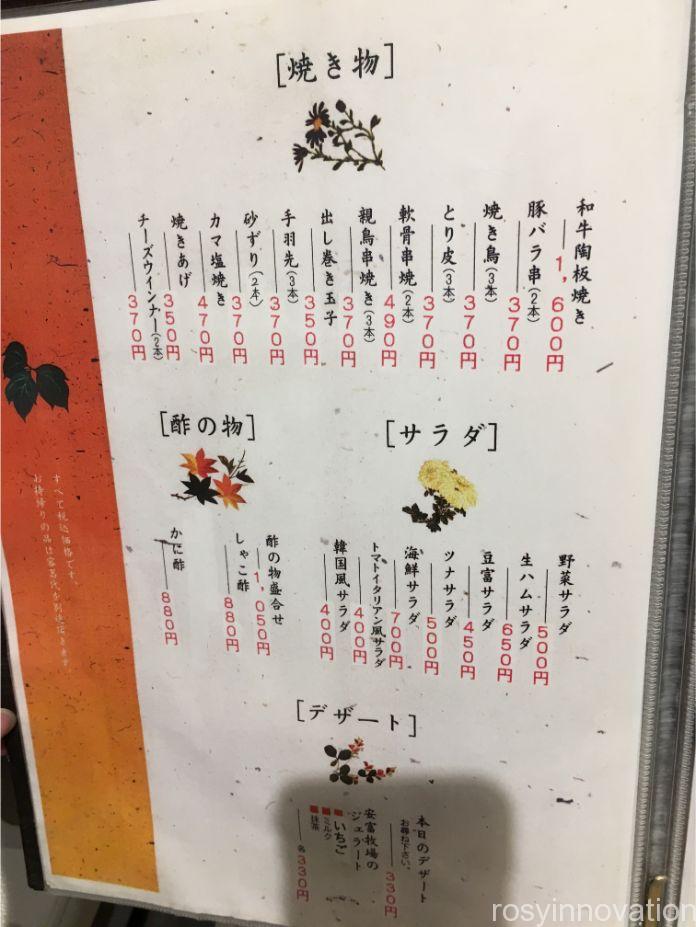 [焼き物]
和牛陶板焼き
1,600円
豚バラ串(2本)
370円
焼き鳥(3本)
370円
とり皮(3本)
370円
軟骨串焼(2本)
490円
親鳥串焼き(3本)
370円
出し巻き玉子
350円
手羽先(3本)
370円
砂ずり(2本)
370円
カマ塩焼き
470円
焼きあげ
350円
チーズウインナー(2本)
370円
[サラダ]
野菜サラダ
500円
生ハムサラダ
650円
豆富サラダ
450円
ツナサラダ
500円
海鮮サラダ
700円
トマトイタリアン風サラダ
400円
韓国風サラダ
400円
[酢の物]
酢の物盛合せ
1,050円
しゃこ酢
880円
かに酢
880円
[デザート]
本日のデザート
お尋ね下さい。
330円
安富牧場の
ジェラート
■いちご
■ミルク
■抹茶
各330円
すべて税込価格です。
お持帰りの品は容器代を別途頂きます。
rosyinnovation